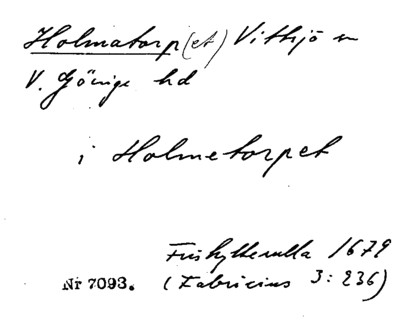 Holmatorp(et) Vittsjö sn
V. Göinge hd
i Holmetorpet
Friskytterulla 1679
Nr 7093. (Fabricius 3:236)